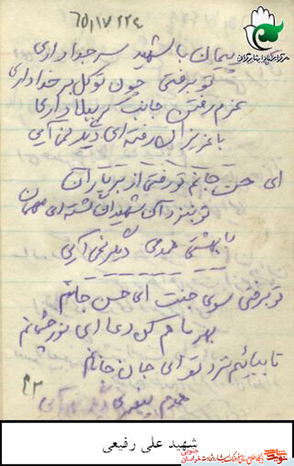 پیمان با شهید سر جدا داری
تو برفتی چون توکل بر خدا داری
عزم رفتن جانب کربلا داری
با عزیزان رفته ای دیگر نمی آیی
ای حسن جانم تو رفتی از بر یاران
تو نیز در آن شهیدان گشته ای مهمان
با بهشتی همدمی دیگر نمی آیی
تو برفتی سوی جنت ای حسن جانم
بهر ما هم کن دعا ای نور چشمانم
تا بیائیم نزد تو ای جان جانانم
همدم پیغمبری دیگر نمی آیی
شهید علی رفیعی